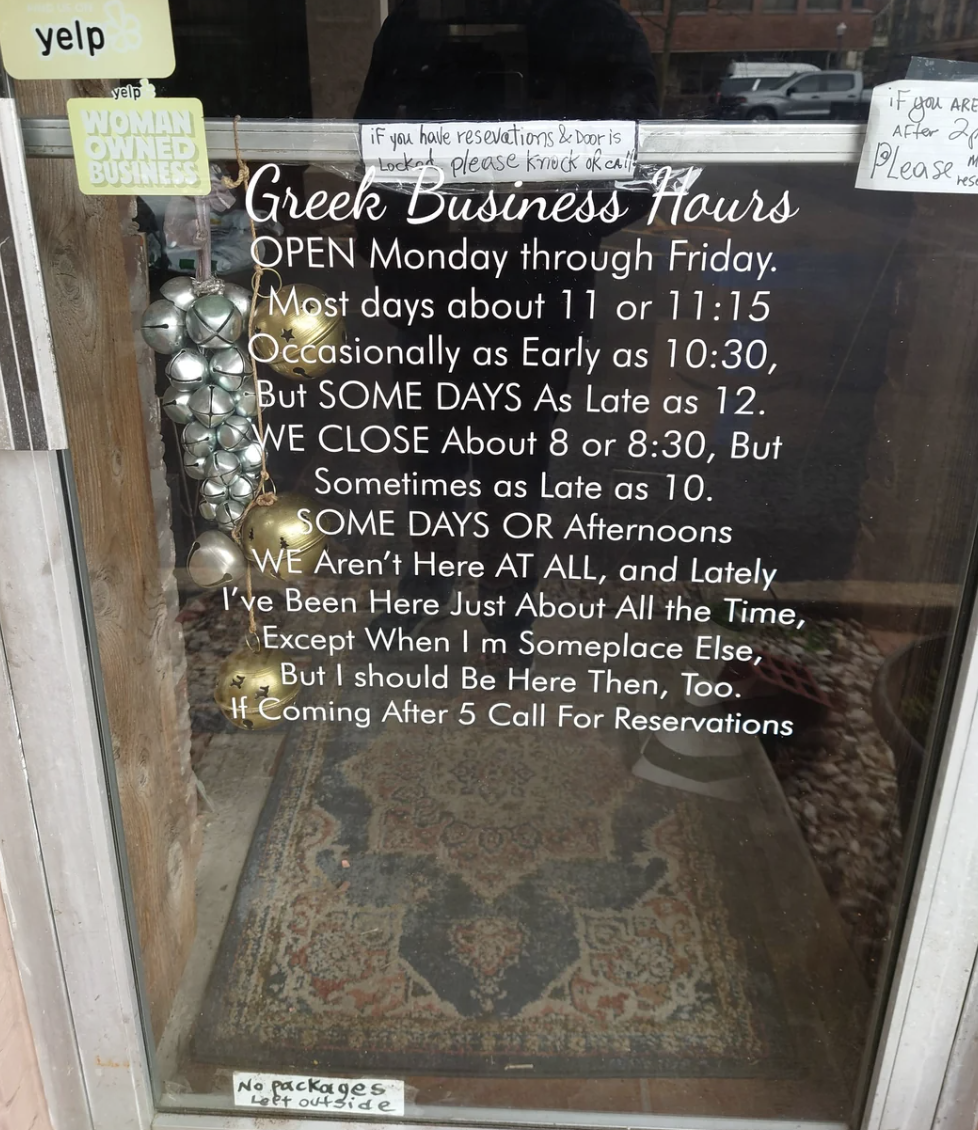 yelp
yelp
WOMAN
OWNED
BUSINESS
if you have resevations & Door is
Locked please knock or call
iF you ARE
AFter
Please
Greek Business Hours
OPEN Monday through Friday.
Most days about 11 or 11:15
Occasionally as Early as 10:30,
But SOME DAYS As Late as 12.
WE CLOSE About 8 or 8:30, But
Sometimes as Late as 10.
SOME DAYS OR Afternoons
WE Aren't Here AT ALL, and Lately
I've Been Here Just About All the Time,
Except When I m Someplace Else,
But I should Be Here Then, Too.
If Coming After 5 Call For Reservations
No packages
Left outside